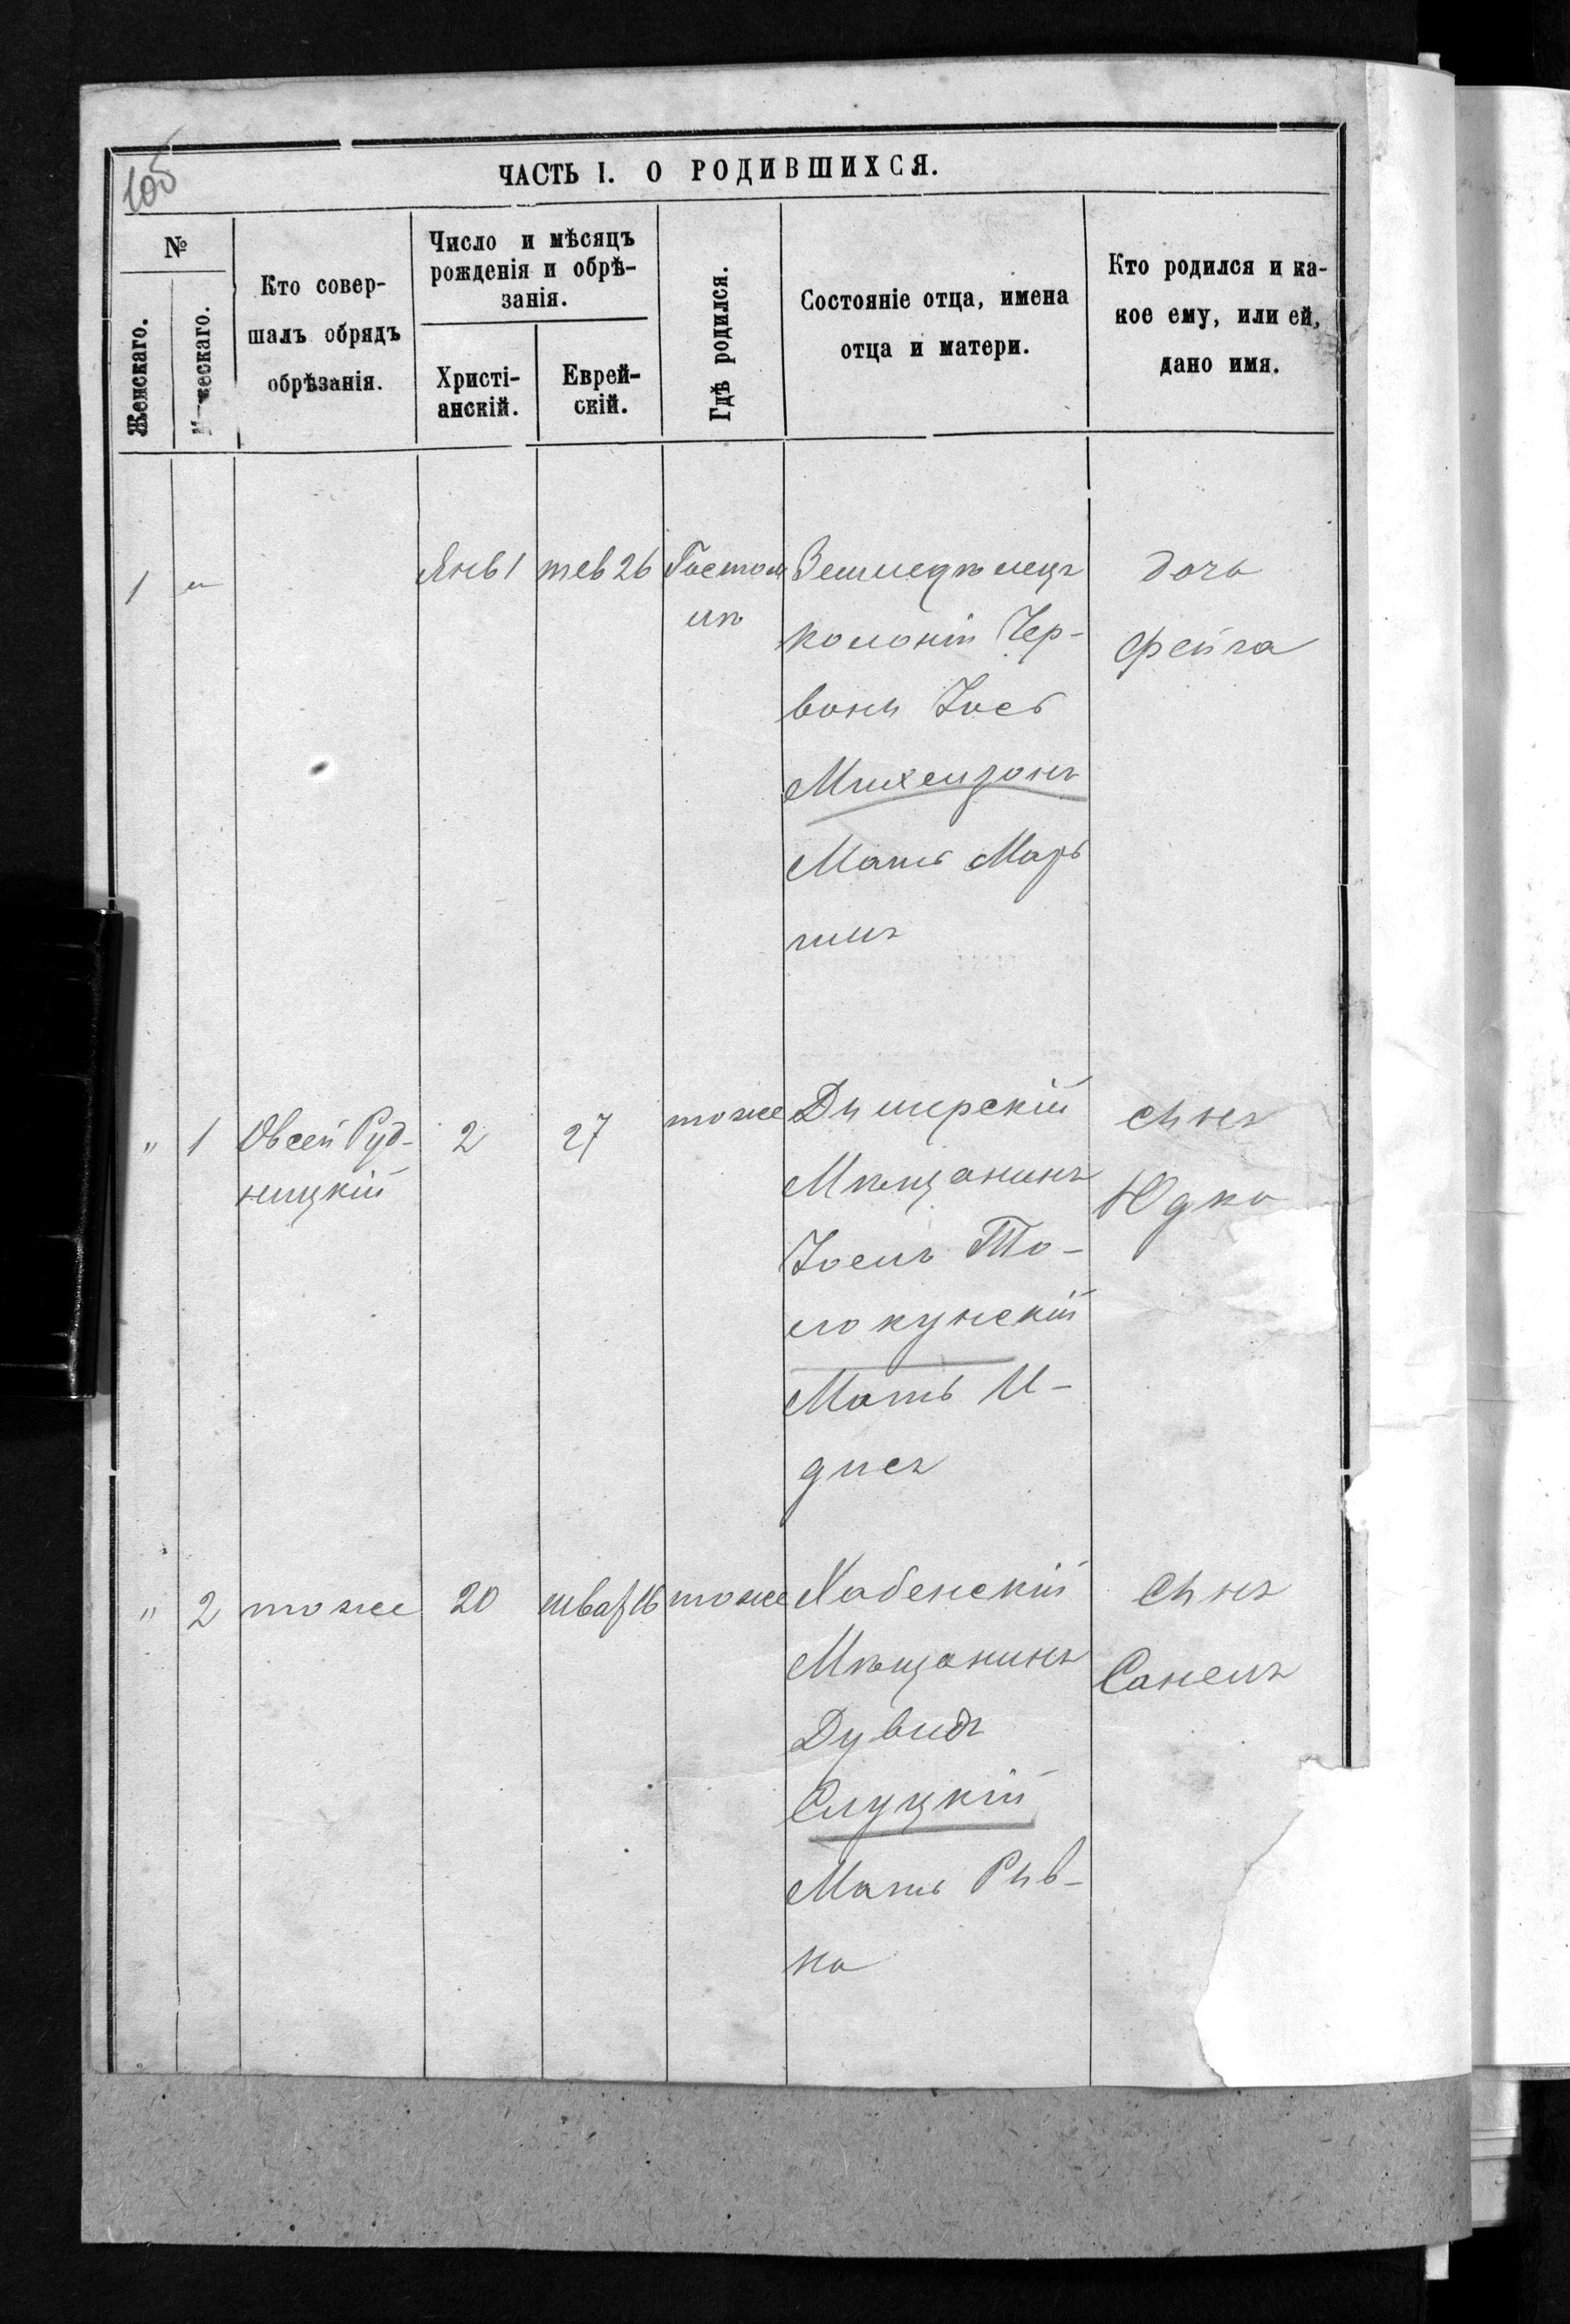 105
ЧАСТЬ I. О РОДИВШИХСЯ.
№
Женскаго.
Мужескаго.
Кто совер-
шалъ обрядъ
обрѣзанія.
Число и мѣсяцъ
рожденія и обрѣ-
занія.
Христі-
анскій.
Еврей-
скій.
Гдѣ родился.
Состояніе отца, имена
отца и матери.
Кто родился и ка-
кое ему, или ей,
дано имя.
1 "
Янв 1
тев 26
Гостом
лѣ
Земледѣлецъ
колоніи Чер-
вони Іось
Михелзонъ
Мать Марь
дочь
Фейга
" 1
Овсей Руд-
ницкій
2
27
тоже
Дымерскій
Мѣщанинъ
Іоель То-
локунскій
Мать И-
дись
сынъ
Юдко
" 2
тоже
20
шват 16
тоже
Хабенскій
Мѣщанинъ
Дувидъ
Слуцкій
Мать Рыв-
ка
сынъ
Санелъ